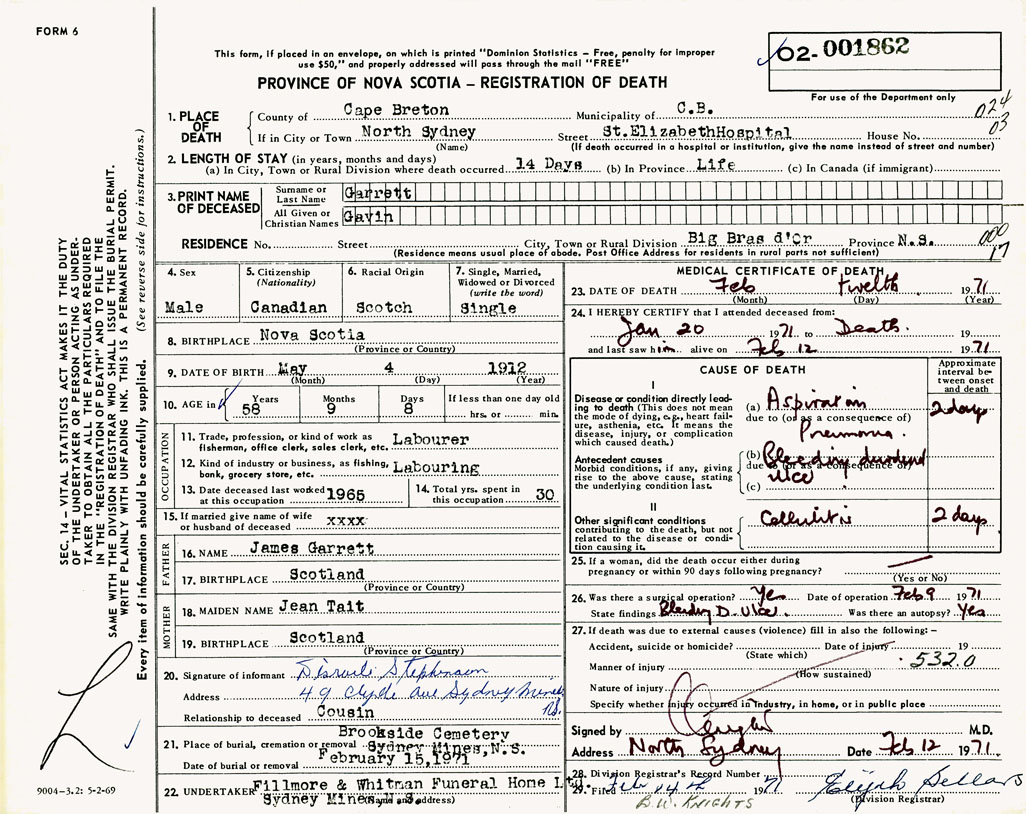 FORM 6
This form, if placed in an envelope, on which is printed "Dominion Statistics – Free, penalty for improper
use $50," and properly addressed will pass through the mail "FREE"
02-001862
For use of the Department only
PROVINCE OF NOVA SCOTIA – REGISTRATION OF DEATH
024
03
1. PLACE OF DEATH
County of Cape Breton Municipality of C.B.
If in City or Town North Sydney Street St.ElizabethHospital House No.
(Name) (If death occurred in a hospital or institution, give the name instead of street and number)
2. LENGTH OF STAY (in years, months and days)
(a) In City, Town or Rural Division where death occurred 14 Days (b) In Province Life (c) In Canada (if immigrant)
3. PRINT NAME OF DECEASED
Surname or Last Name Garrett
All Given or Christian Names Gavin
RESIDENCE No. Street City, Town or Rural Division Big Bras d'Or Province N.S.
000
17
(Residence means usual place of abode. Post Office Address for residents in rural parts not sufficient)
4. Sex
Male
5. Citizenship
(Nationality)
Canadian
6. Racial Origin
Scotch
7. Single, Married,
Widowed or Divorced
(write the word)
Single
8. BIRTHPLACE Nova Scotia
(Province or Country)
9. DATE OF BIRTH May 4 1912
(Month) (Day) (Year)
10. AGE in
Years Months Days If less than one day old
58 9 8 hrs. or min.
OCCUPATION
11. Trade, profession, or kind of work as
fisherman, office clerk, sales clerk, etc. Labourer
12. Kind of industry or business, as fishing,
bank, grocery store, etc. Labouring
13. Date deceased last worked
at this occupation 1965
14. Total yrs. spent in
this occupation 30
15. If married give name of wife
or husband of deceased xxxx
FATHER
16. NAME James Garrett
17. BIRTHPLACE Scotland
(Province or Country)
MOTHER
18. MAIDEN NAME Jean Tait
19. BIRTHPLACE Scotland
(Province or Country)
20. Signature of informant Disraeli Stephenson
Address 49 Clyde Ave Sydney Mines
N.S.
Relationship to deceased Cousin
21. Place of burial, cremation or removal Brookside Cemetery
Sydney Mines, N.S.
Date of burial or removal February 15,1971
22. UNDERTAKER Fillmore & Whitman Funeral Home Ltd.
Sydney Mines N.S.
(Name and address)
MEDICAL CERTIFICATE OF DEATH
23. DATE OF DEATH Feb twelth 1971
(Month) (Day) (Year)
24. I HEREBY CERTIFY that I attended deceased from:
Jan 20 1971 to Death. 19
and last saw him alive on Feb 12 1971
CAUSE OF DEATH
Approximate
interval be-
tween onset
and death
I
Disease or condition directly lead-
ing to death (This does not
mean the mode of dying, e.g., heart fail-
ure, asthenia, etc. It means the
disease, injury, or complication
which caused death.)
(a) Aspiration 2 days
due to (or as a consequence of)
Pneumonia.
Antecedent causes
Morbid conditions, if any, giving
rise to the above cause, stating
the underlying condition last.
(b) Bleeding duodenal
due to (or as a consequence of)
ulcer
(c)
II
Other significant conditions
contributing to the death, but not
related to the disease or condi-
tion causing it.
Cellulitis 2 days
25. If a woman, did the death occur either during
pregnancy or within 90 days following pregnancy?
(Yes or No)
26. Was there a surgical operation? Yes Date of operation Feb 9 1971
State findings Bleeding D. Ulcer. Was there an autopsy? Yes
27. If death was due to external causes (violence) fill in also the following: –
Accident, suicide or homicide? Date of injury 19
(State which)
532.0
Manner of injury
(How sustained)
Nature of injury
Specify whether injury occurred in Industry, in home, or in public place
Signed by M.D.
Address North Sydney Date Feb 12 1971.
28. Division Registrar's Record Number 7
29. Filed Feb 14th 1971 Elijah Sellars
B.W. KNIGHTS (Division Registrar)
SEC. 14 – VITAL STATISTICS ACT MAKES IT THE DUTY
OF THE UNDERTAKER OR PERSON ACTING AS UNDER-
TAKER TO OBTAIN ALL THE PARTICULARS REQUIRED
IN THE "REGISTRATION OF DEATH" AND TO FILE THE
SAME WITH THE DIVISION REGISTRAR WHO SHALL ISSUE THE BURIAL PERMIT.
WRITE PLAINLY WITH UNFADING INK. THIS IS A PERMANENT RECORD.
Every item of information should be carefully supplied. (See reverse side for instructions.)
9004-3.2: 5-2-69